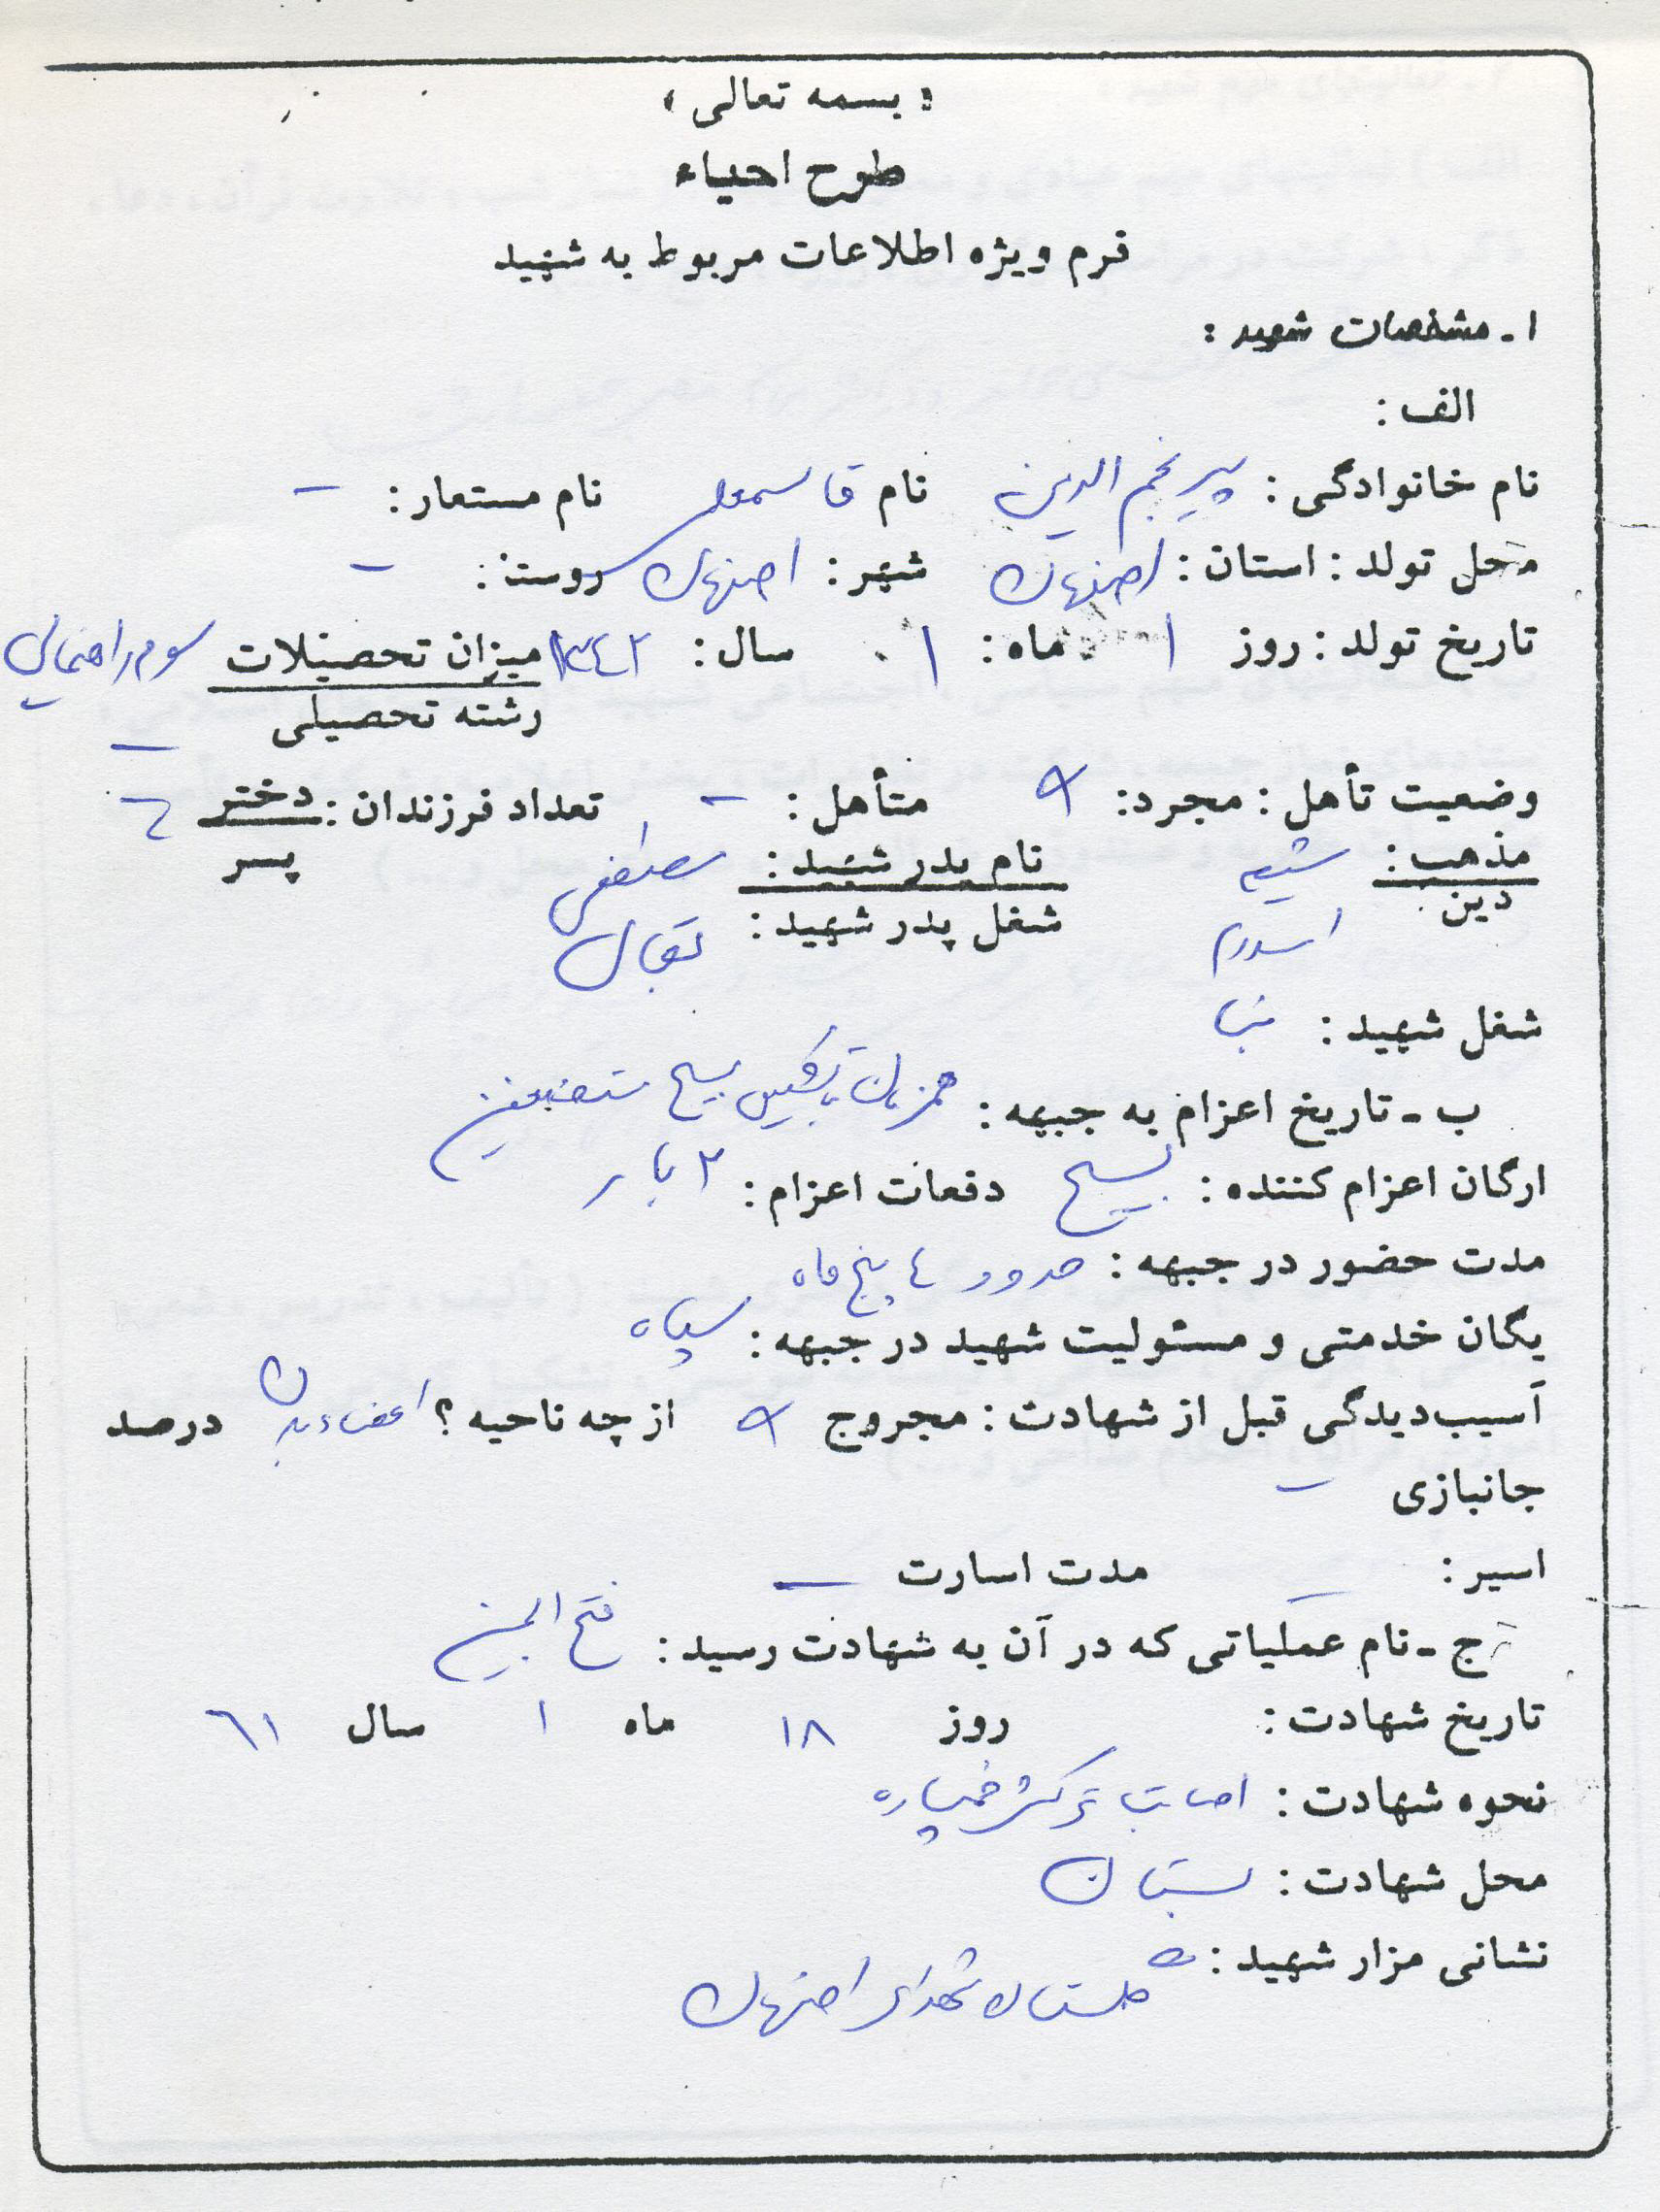 « بسمه تعالی »
طرح احیاء
فرم ویژه اطلاعات مربوط به شهید
۱ - مشخصات شهید :
الف :
نام خانوادگی : پیرنجم الدین نام قاسمعلی نام مستعار : -
محل تولد : استان : اصفهان شهر : اصفهان روستا : -
تاریخ تولد : روز ۱ ماه : ۱ سال : ۱۳۴۲ میزان تحصیلات سوم راهنمایی
رشته تحصیلی -
وضعیت تأهل : مجرد : متأهل : - تعداد فرزندان : دختر -
پسر
مذهب : شیعه نام پدر شهید : مصطفی
دین اسلام شغل پدر شهید : بقال
شغل شهید : بنا
ب - تاریخ اعزام به جبهه : همزمان با تشکیل بسیج مستضعفین
ارگان اعزام کننده : بسیج دفعات اعزام : ۲ بار
مدت حضور در جبهه : حدود ٤ پنج ماه
یگان خدمتی و مسئولیت شهید در جبهه : سپاه
آسیب‌دیدگی قبل از شهادت : مجروح از چه ناحیه ؟ اعضاء بدن درصد
جانبازی -
اسیر : - مدت اسارت -
ج - نام عملیاتی که در آن به شهادت رسید : فتح المبین
تاریخ شهادت : روز ۱۸ ماه ۱ سال ٦۱
نحوه شهادت : اصابت ترکش خمپاره
محل شهادت : بستان
نشانی مزار شهید : گلستان شهدای اصفهان